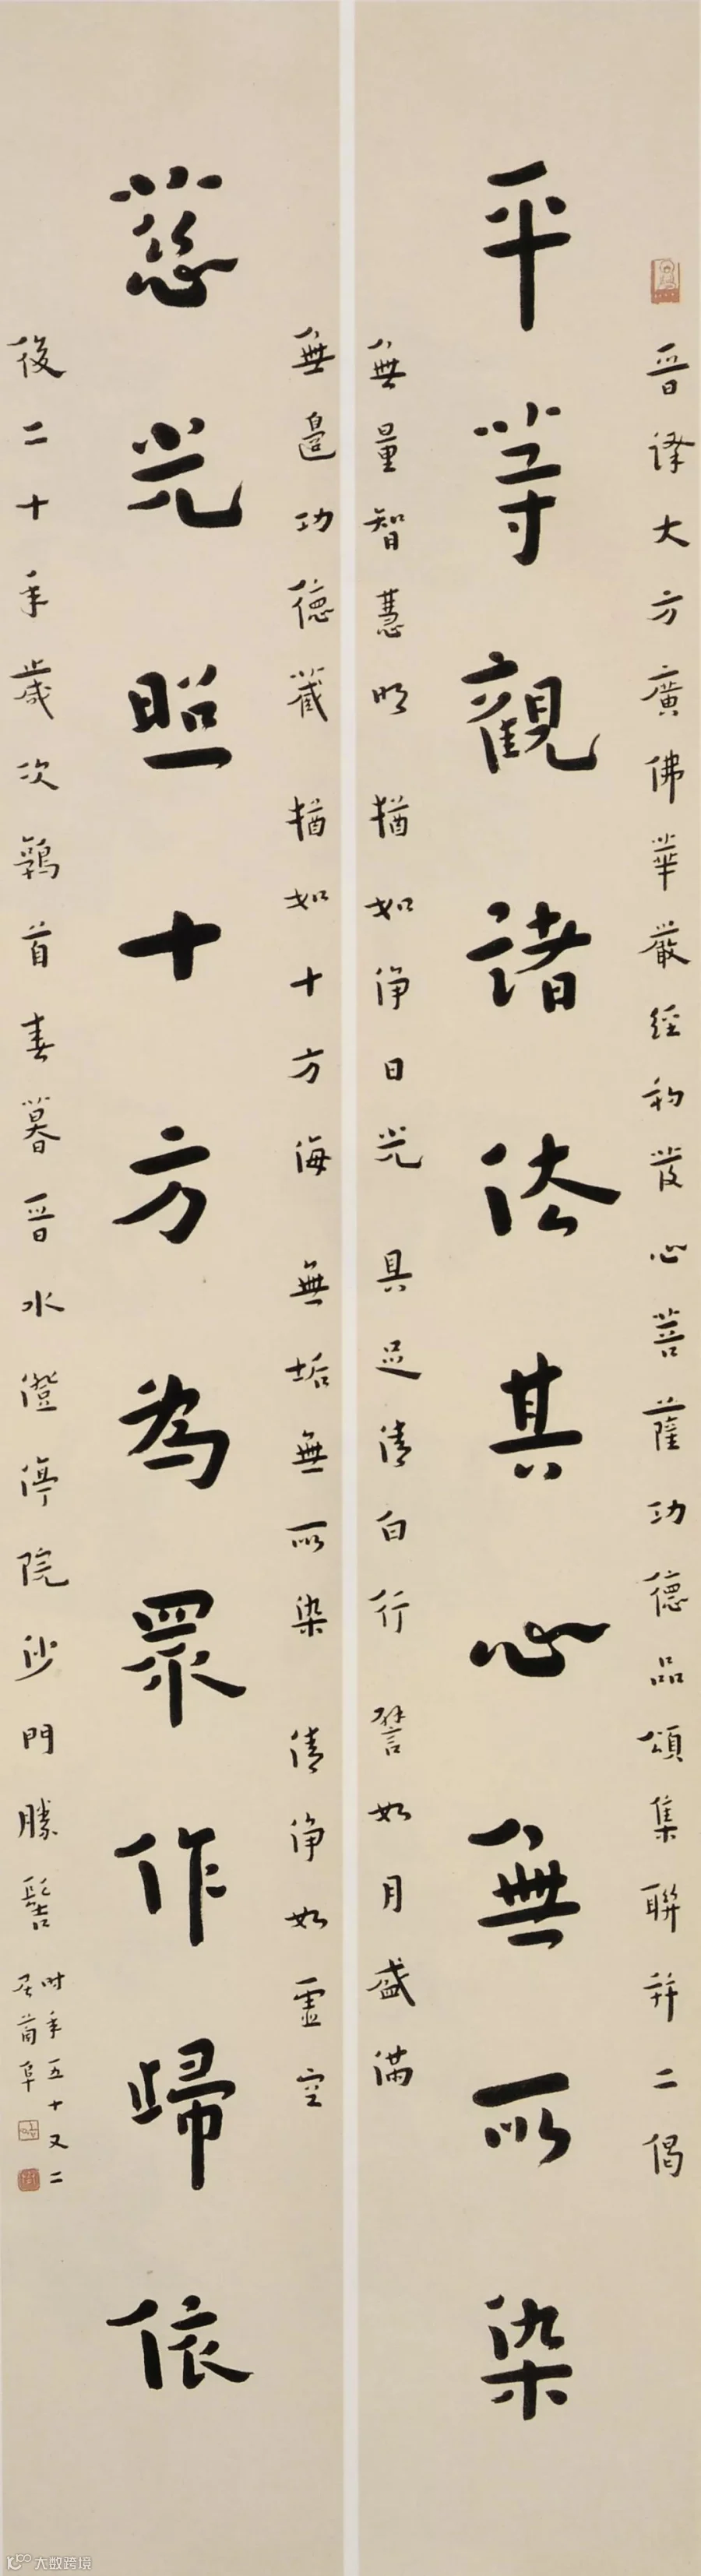 晉譯大方廣佛華嚴經初發心菩薩功德品頌集聯并二偈
平等觀諸法其心無所染
無量智慧明 猶如淨日光 具足清白行 譬如月盛滿
無邊功德藏 猶如十方海 無垢無所染 清淨如虛空
慈光照十方為眾作歸依
後二十年歲次鶉首春暮晉水澄渟院沙門勝髻
時年五十又二
居茀阜
大数跨境